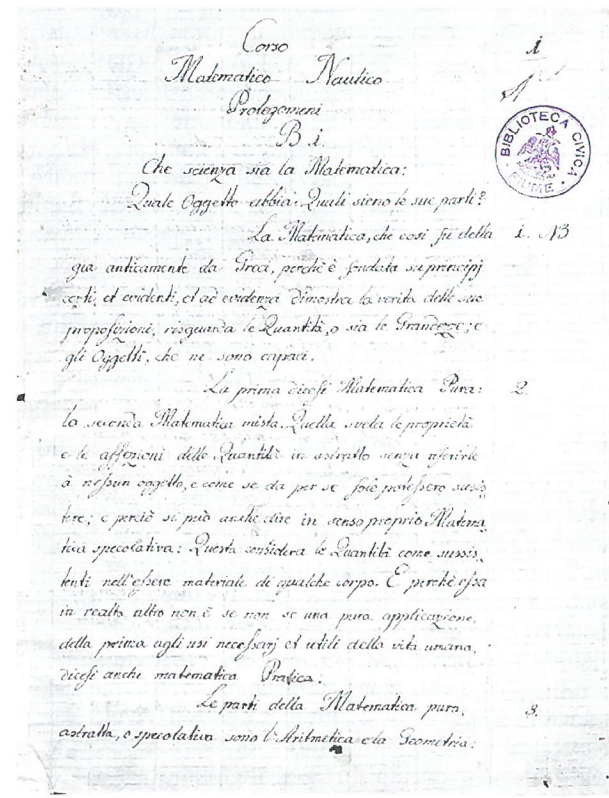 Corso
1
Matematico Nautico
Prolegomeni
B i.
BIBLIOTECA CIVICA
FIUME
Che scienza sia la Matematica:
Quale Oggetto abbia: Quali sieno le sue parti?
La Matematica, che così fù detta
1. N3
gia anticamente da Greci, perchè è fondata su principj
certi, et evidenti, et ad evidenza dimostra la verità delle sue
proposizioni, risguarda le Quantità, o sia le Grandezze; e
gli Oggetti, che ne sono capaci.
La prima dicesi Matematica Pura:
2.
la seconda Matematica mista. Quella svela le proprietà
e le affezioni delle Quantità in astratto senza riferirle
à nessun oggetto, e come se da per se sole potessero sussis,
tere; e perciò si può anche dire in senso proprio Matema,
tica specolativa: Questa considera le Quantità come sussis,
tenti nell'essere materiale di qualche corpo. E perchè essa
in realtà altro non è se non se una pura applicazione,
della prima agli usi necessarj et utili della vita umana,
dicesi anche matematica Pratica.
Le parti della Matematica pura,
3.
astratta, o specolativa sono l'Aritmetica e la Geometria: